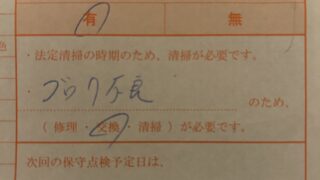 有 無
・法定清掃の時期のため、清掃が必要です。
・ブロワ不良 のため、
（ 修理 ・ 交換 ・ 清掃 ）が必要です。
次回の保守点検予定日は、